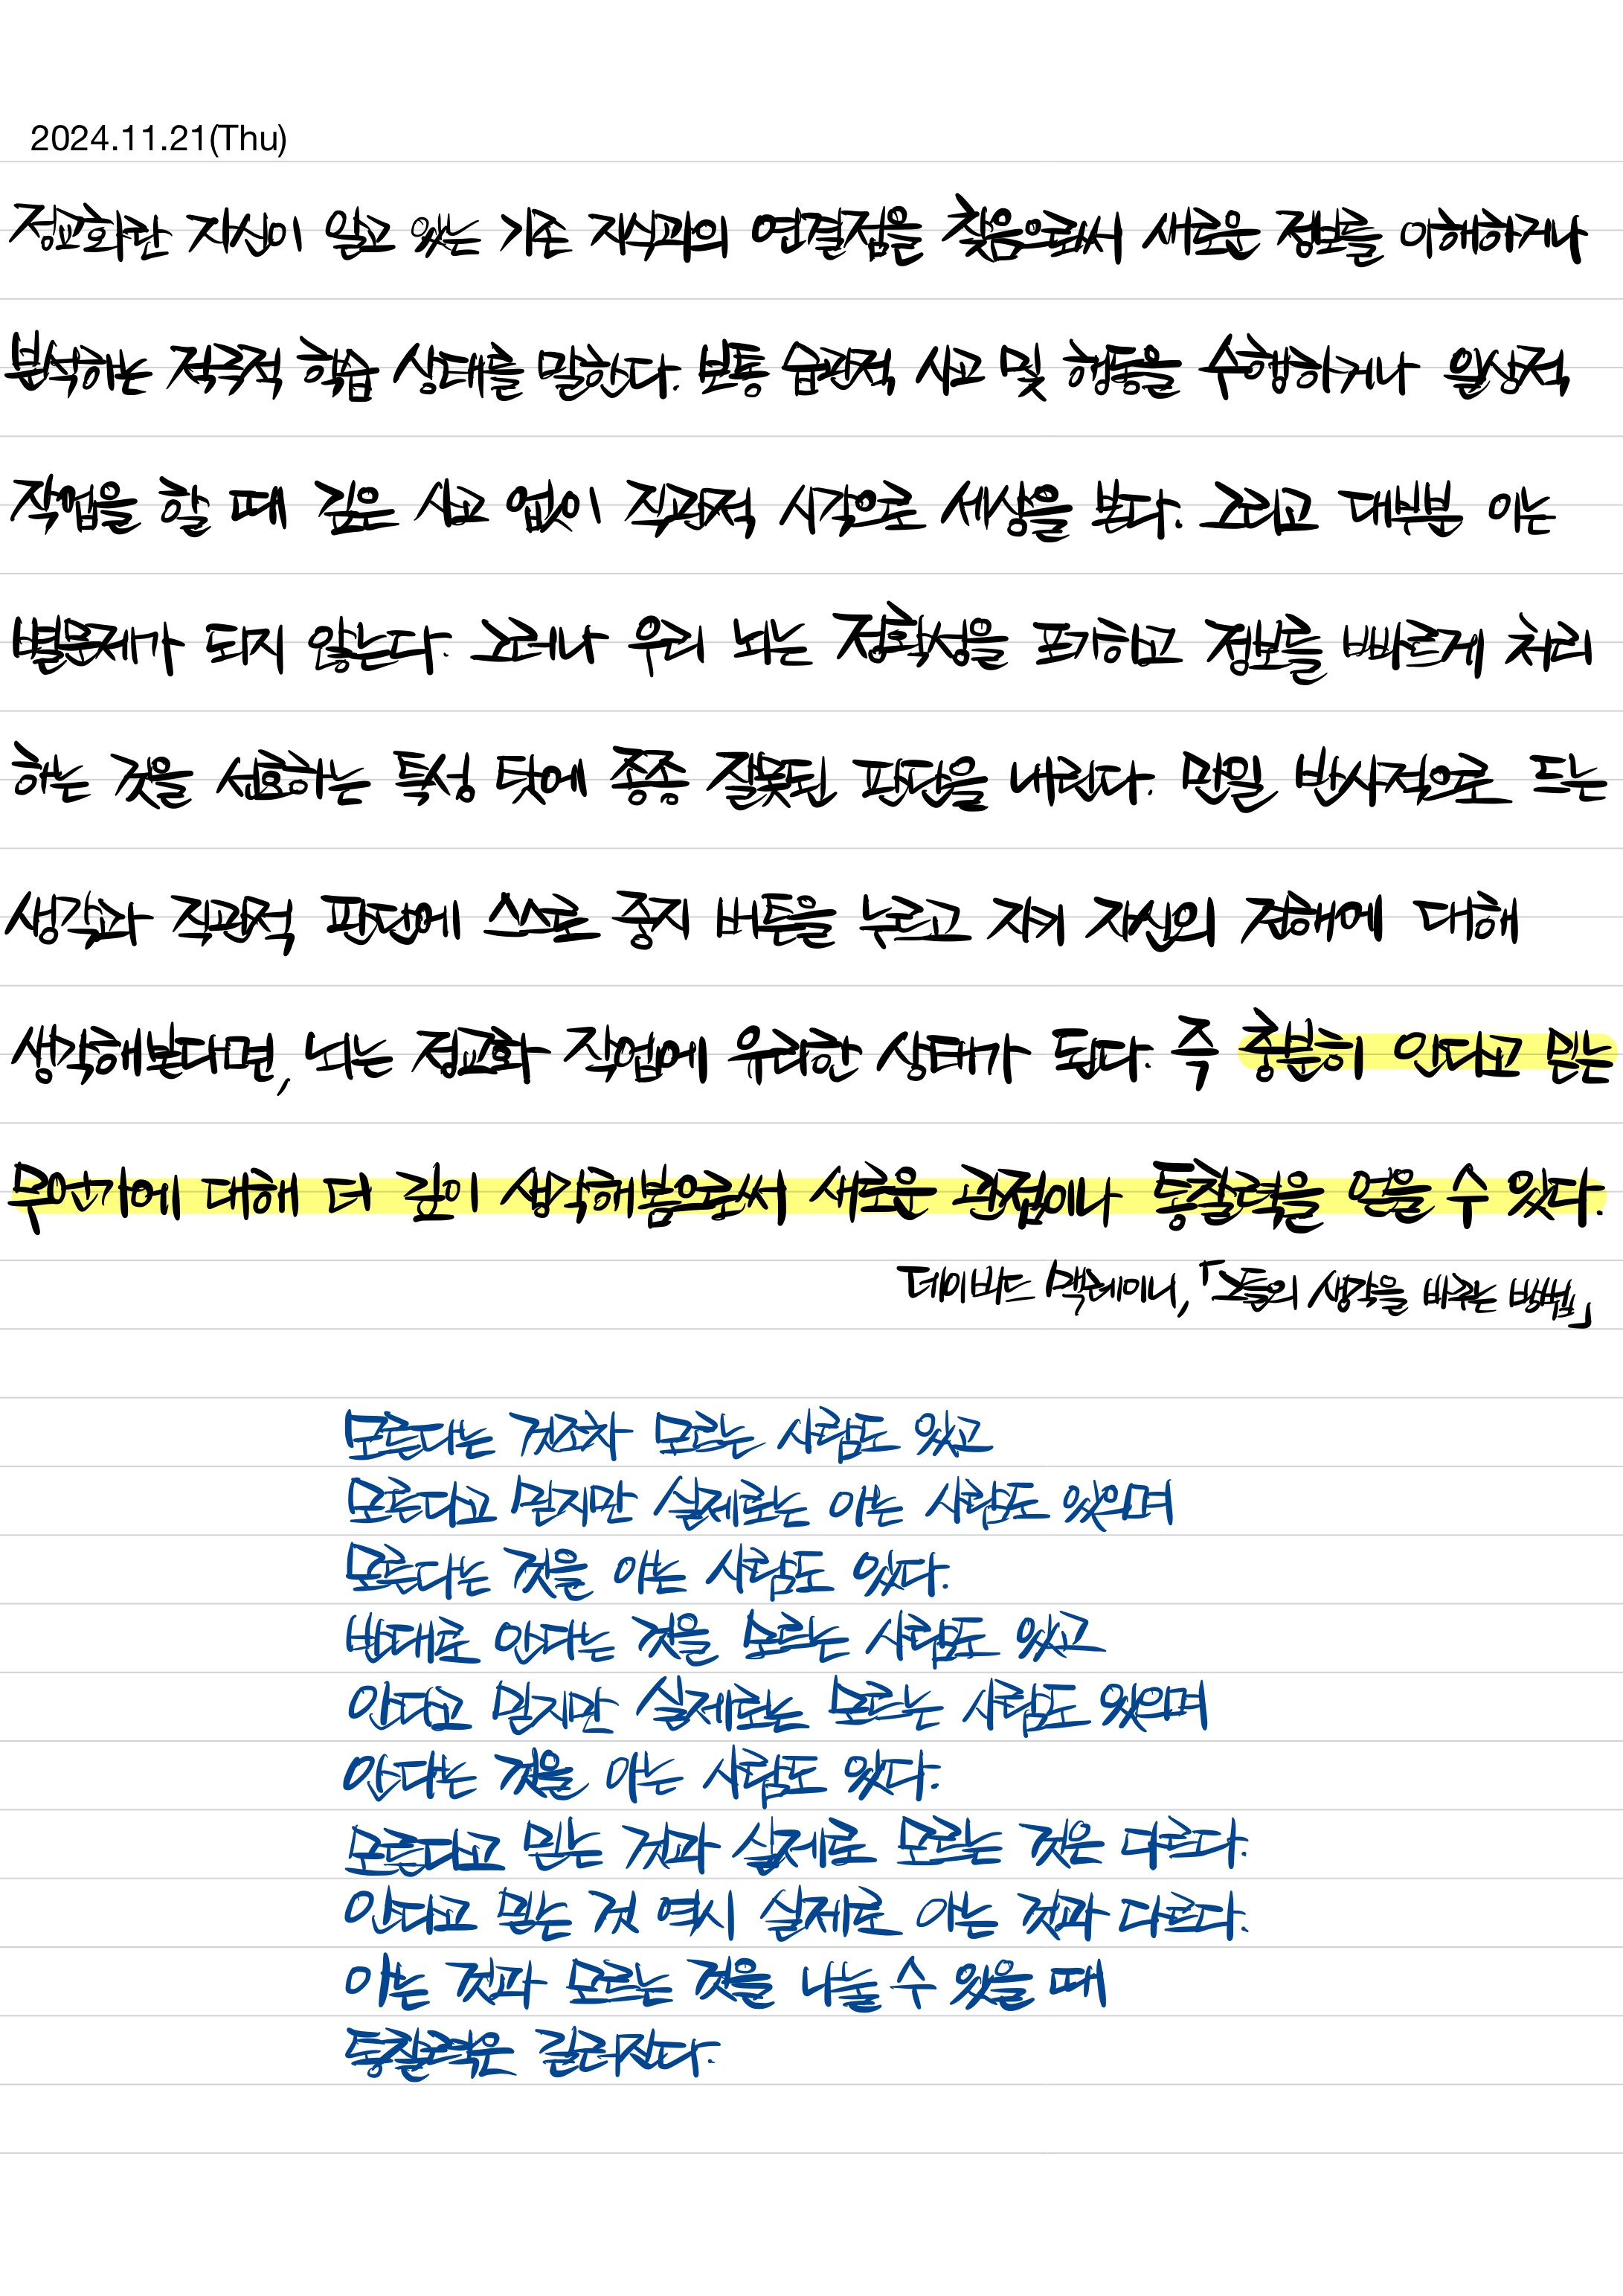 2024.11.21(Thu)
정교화란 자신이 알고 있는 기존 지식과의 연결점을 찾음으로써 새로운 정보를 이해하거나
분석하는 적극적 학습 상태를 말한다. 보통 습관적 사고 및 행동을 수행하거나 일상적
작업을 할 때 깊은 사고 없이 직관적 시각으로 세상을 본다. 그리고 대부분 이는
별문제가 되지 않는다. 그러나 우리 뇌는 정확성을 포기하고 정보를 빠르게 처리
하는 것을 선호하는 특성 탓에 종종 잘못된 판단을 내린다. 만일 반사적으로 드는
생각과 직관적 판단에 스스로 중지 버튼을 누르고 자기 자신의 견해에 대해
생각해본다면, 뇌는 정교화 작업에 유리한 상태가 된다. 즉 충분히 안다고 믿는
무언가에 대해 더 깊이 생각해봄으로써 새로운 관점이나 통찰력을 얻을 수 있다.
데이비드 맥레이니, 「그들의 생각을 바꾸는 방법」
모른다는 것조차 모르는 사람도 있고
모른다고 믿지만 실제로는 아는 사람도 있으며
모른다는 것을 아는 사람도 있다.
반대로 안다는 것을 모르는 사람도 있고
안다고 믿지만 실제로는 모르는 사람도 있으며
안다는 것을 아는 사람도 있다.
모른다고 믿는 것과 실제로 모르는 것은 다르다.
안다고 믿는 것 역시 실제로 아는 것과 다르다.
아는 것과 모르는 것을 나눌 수 있을 때
통찰력은 길러진다.